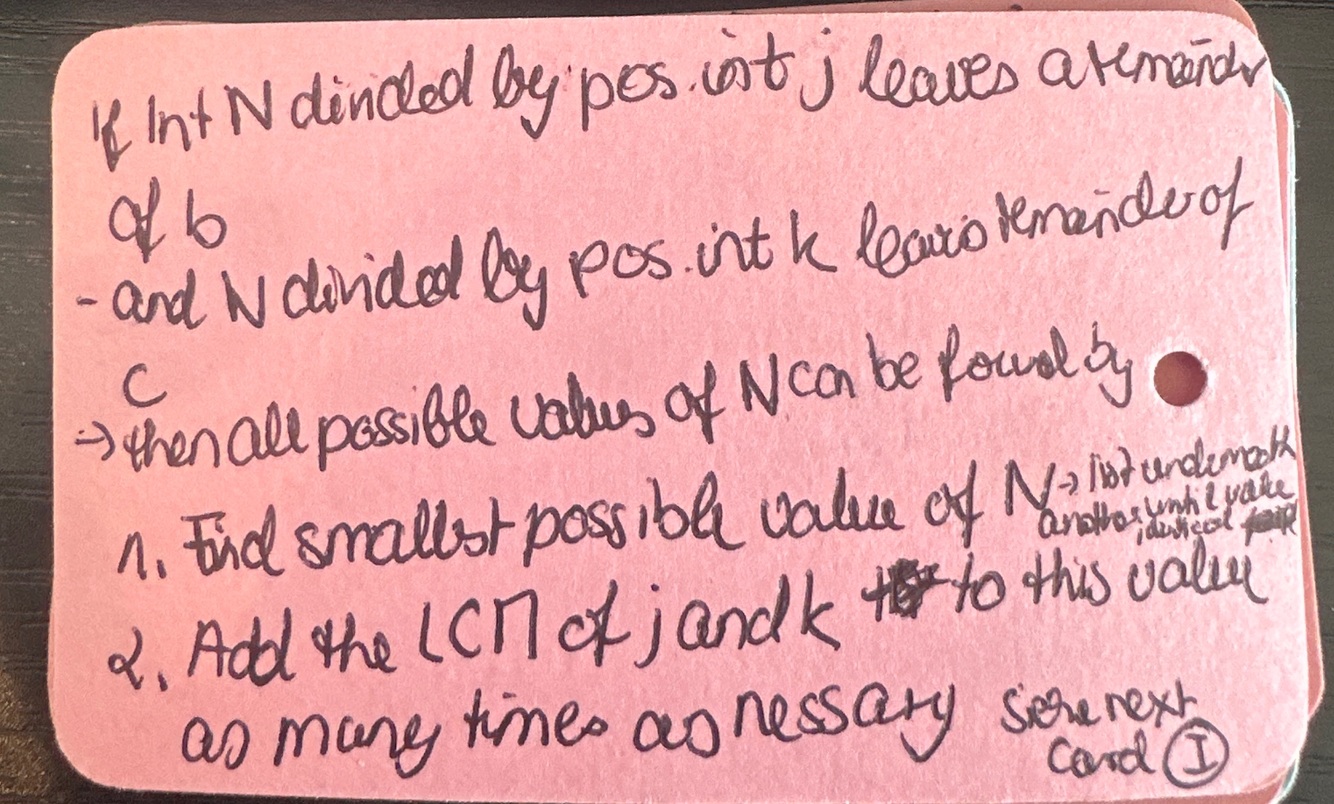 If Int N divided by pos. int j leaves a remaindr
of b
- and N divided by pos. int k leavs remainder of
c
→ then all possible values of N can be found by
1. Find smallest possible value of N → list underneath
another until value
identical
2. Add the LCM of j and k to this value
as many times as nessary
next
card I